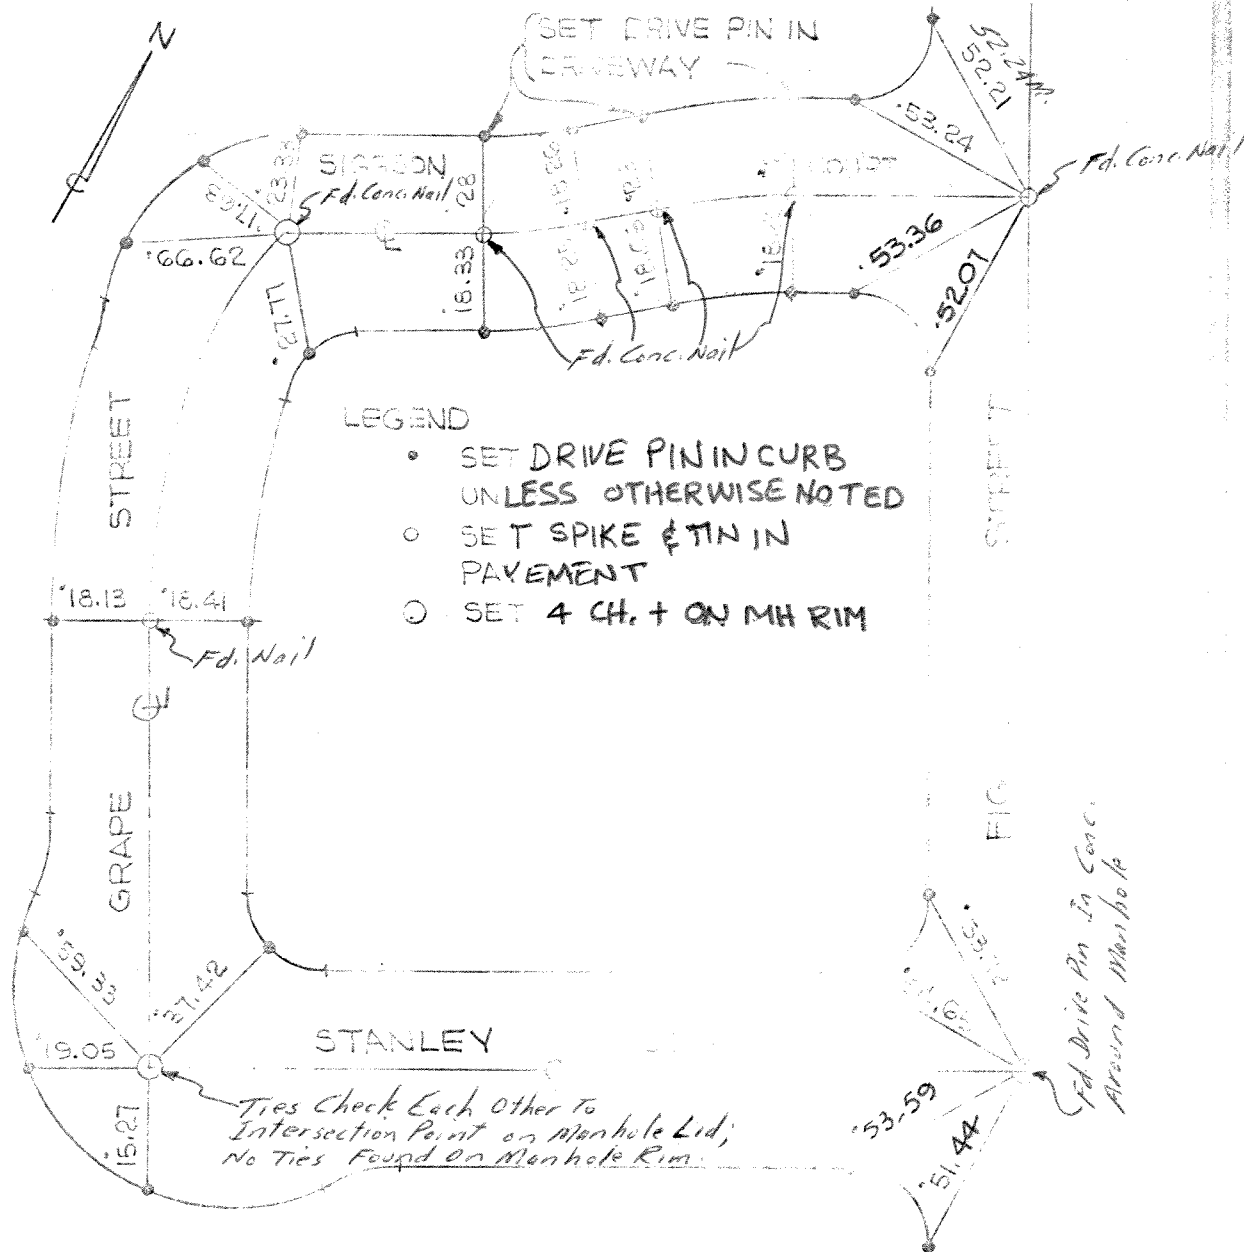 N
SET DRIVE PIN IN
DRIVEWAY
52.24 M.
52.21
53.24
Fd. Conc. Nail
53.36
52.07
Fd. Conc. Nail
17.63
66.62
18.33
28
18.26
Fd. Conc. Nail
LEGEND
SET DRIVE PIN IN CURB
UNLESS OTHERWISE NOTED
SET SPIKE & TIN IN
PAVEMENT
SET 4 CH. + ON MH RIM
STREET
STREET
18.13
18.41
Fd. Nail
GRAPE
FIG
59.33
37.42
19.05
15.27
STANLEY
Ties Check Each Other To
Intersection Point on Manhole Lid;
No Ties Found On Manhole Rim.
53.59
51.44
Fd. Drive Pin In Conc.
Around Manhole